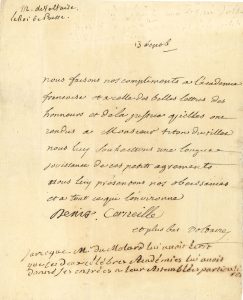 M. de Voltaire
le Roi de Prusse
nous faisons nos compliments a l'academie
francoise et a celle des belles lettres des
honneurs et de la justice qu'elles ont
rendus a Monsieur titon du tillet
nous luy souhaittons une longue
jouissance de ces petits agrements
nous luy presentons nos obeissances
et a tout ce qui l'environne
Denis Corneille
et plus bas voltaire
parceque M. du Molard lui avoit écrit
que ces deux célèbres Académies lui avoient
donné ses entrées a leurs Assemblées particulieres